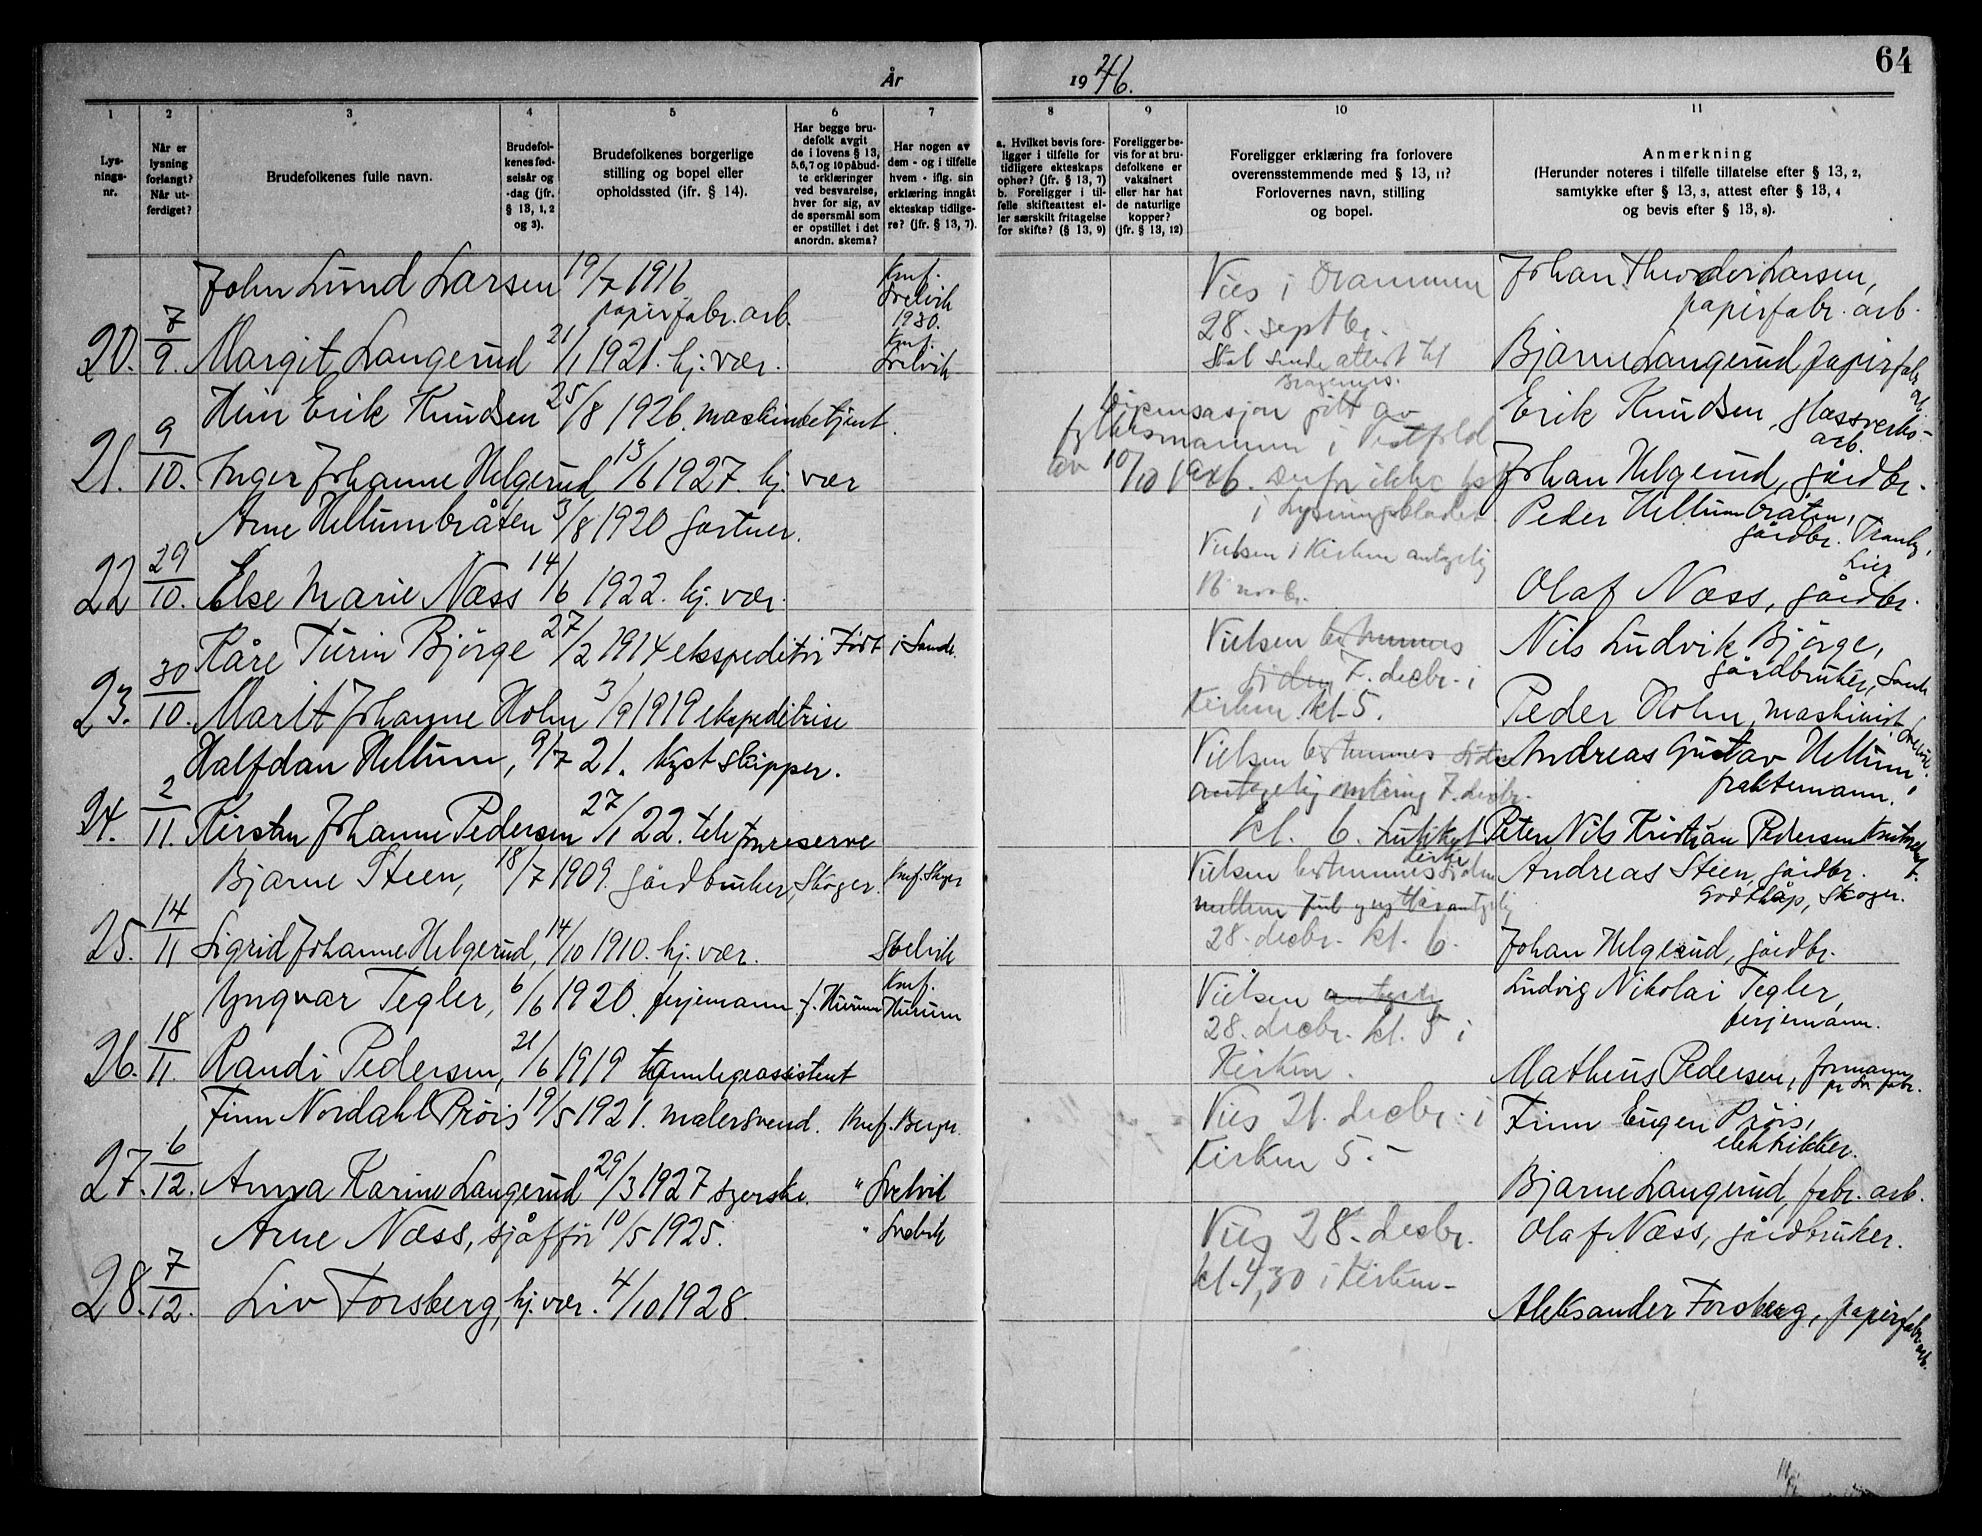 År 1946.
64
1
2
3
4
5
6
7
8
9
10
11
Lys-
nings-
nr.
Når er
lysning
forlangt?
Når ut-
ferdiget?
Brudefolkenes fulle navn.
Brudefol-
kenes fød-
selsår og
-dag (jfr.
§ 13, 1, 2
og 3).
Brudefolkenes borgerlige
stilling og bopel eller
opholdssted (ifr. § 14).
Har begge bru-
defolk avgit
de i lovens § 13,
5, 6, 7 og 10 påbud-
te erklæringer
ved besvarelse,
hver for sig, av
de spørsmål som
er opstillet i det
anordn. skema?
Har nogen av
dem - og i tilfelle
hvem - iflg. sin
erklæring inngått
ekteskap tidlige-
re? (jfr. § 13, 7).
a. Hvilket bevis fore-
ligger i tilfelle for
tidligere ekteskaps
ophør? (jfr. § 13, 7)
b. Foreligger i til-
felle skifteattest el-
ler særskilt fritagelse
for skifte? (§ 13, 9)
Foreligger be-
vis for at bru-
defolkene er
vaksinert
eller har hat
de naturlige
kopper?
(jfr. § 13, 12)
Foreligger erklæring fra forlovere
overensstemmende med § 13, 11?
Forlovernes navn, stilling
og bopel.
Anmerkning
(Herunder noteres i tilfelle tillatelse efter § 13, 2,
samtykke efter § 13, 3, attest efter § 13, 4
og bevis efter § 13, 8).
John Lund Larsen 19/7 1916
papirfabr. arb.
Knf.
Svelvik
1930.
20. 7/9. Margit Langerud 21/1 1921. hj. vær.
Knf.
Svelvik
Vies i Drammen
28. septbr.
Skal sende attest til
Bragernes.
Johan Theodor Larsen,
papirfabr. arb.
Bjarne Langerud papirfabr.
arb.
Erik Knudsen 25/8 1926. maskinbetjent.
21. 9/10. Inger Johanne Helgerud 13/6 1927. hj. vær
Dispensasjon gitt av
fylkesmannen i Vestfold
av 10/10 1946. derfor ikke
i Lysningsbladet
Erik Knudsen, glassverks-
arb.
Johan Helgerud, gårdbr.
Arne Hellumbråten 3/8 1920 gartner.
22 29/10. Else Marie Næss 14/6 1922. hj. vær.
Vielsen i Kirken antagelig
16 novbr.
Peder Hellumbråten,
gårdbr. Tranby,
Lier
Olaf Næss, gårdbr.
Kåre Turin Bjørge 27/2 1914 ekspeditør Født i Sande.
23. 30/10. Marit Johanne Holm 3/9 1919 ekspeditrise
Vielsen bestemmes
siden 7. decbr. i
Kirken kl. 5.
Nils Ludvik Bjørge,
gårdbruker, Sande
Peder Holm, maskinist, Svelvik.
Halfdan Hellum, 9/7 21. Kystskipper.
24. 2/11. Kirsten Johanne Pedersen 27/1 22. telefonreserve
Vielsen bestemmes siden
antagelig omkring 7. decbr.
kl. 6.
Andreas Gustav Hellum,
fraktemann.
Peter Nils Kristian Pedersen
Bjarne Steen, 18/7 1909. gårdbruker, Skoger. Knf. Skoger
25. 14/11 Sigrid Johanne Helgerud, 14/10 1910. hj. vær. Svelvik
Vielsen bestemmes siden
mellem Jul og nyttår antagelig
28. decbr. kl. 6.
Andreas Steen, gårdbr.
Skoger.
Johan Helgerud, gårdbr.
Yngvar Tegler, 6/6 1920. ferjemann f. Hurum
Knf.
Hurum
26. 18/11. Randi Pedersen, 21/6 1919 tannlegeassistent
Vielsen antagelig
28. decbr. kl. 5 i
Kirken.
Ludvig Nikolai Tegler,
ferjemann.
Matheus Pedersen, formann
Finn Nordahl Prøis 19/5 1921. malersvend. Knf. Bergen.
27. 6/12. Anna Karine Langerud 29/3 1927 syerske. " Svelvik
Vies 21. decbr. i
Kirken 5.-
Finn Eugen Prøis,
elektrikker.
Bjarne Langerud, fabr. arb.
Arne Næss, sjåffør 10/5 1925. " Svelvik
28. 7/12. Liv Forsberg, hj. vær. 4/10 1928.
Vies 28. decbr.
kl. 4,30 i Kirken-
Olaf Næss, gårdbruker.
Aleksander Forsberg, papirfabr. arb.